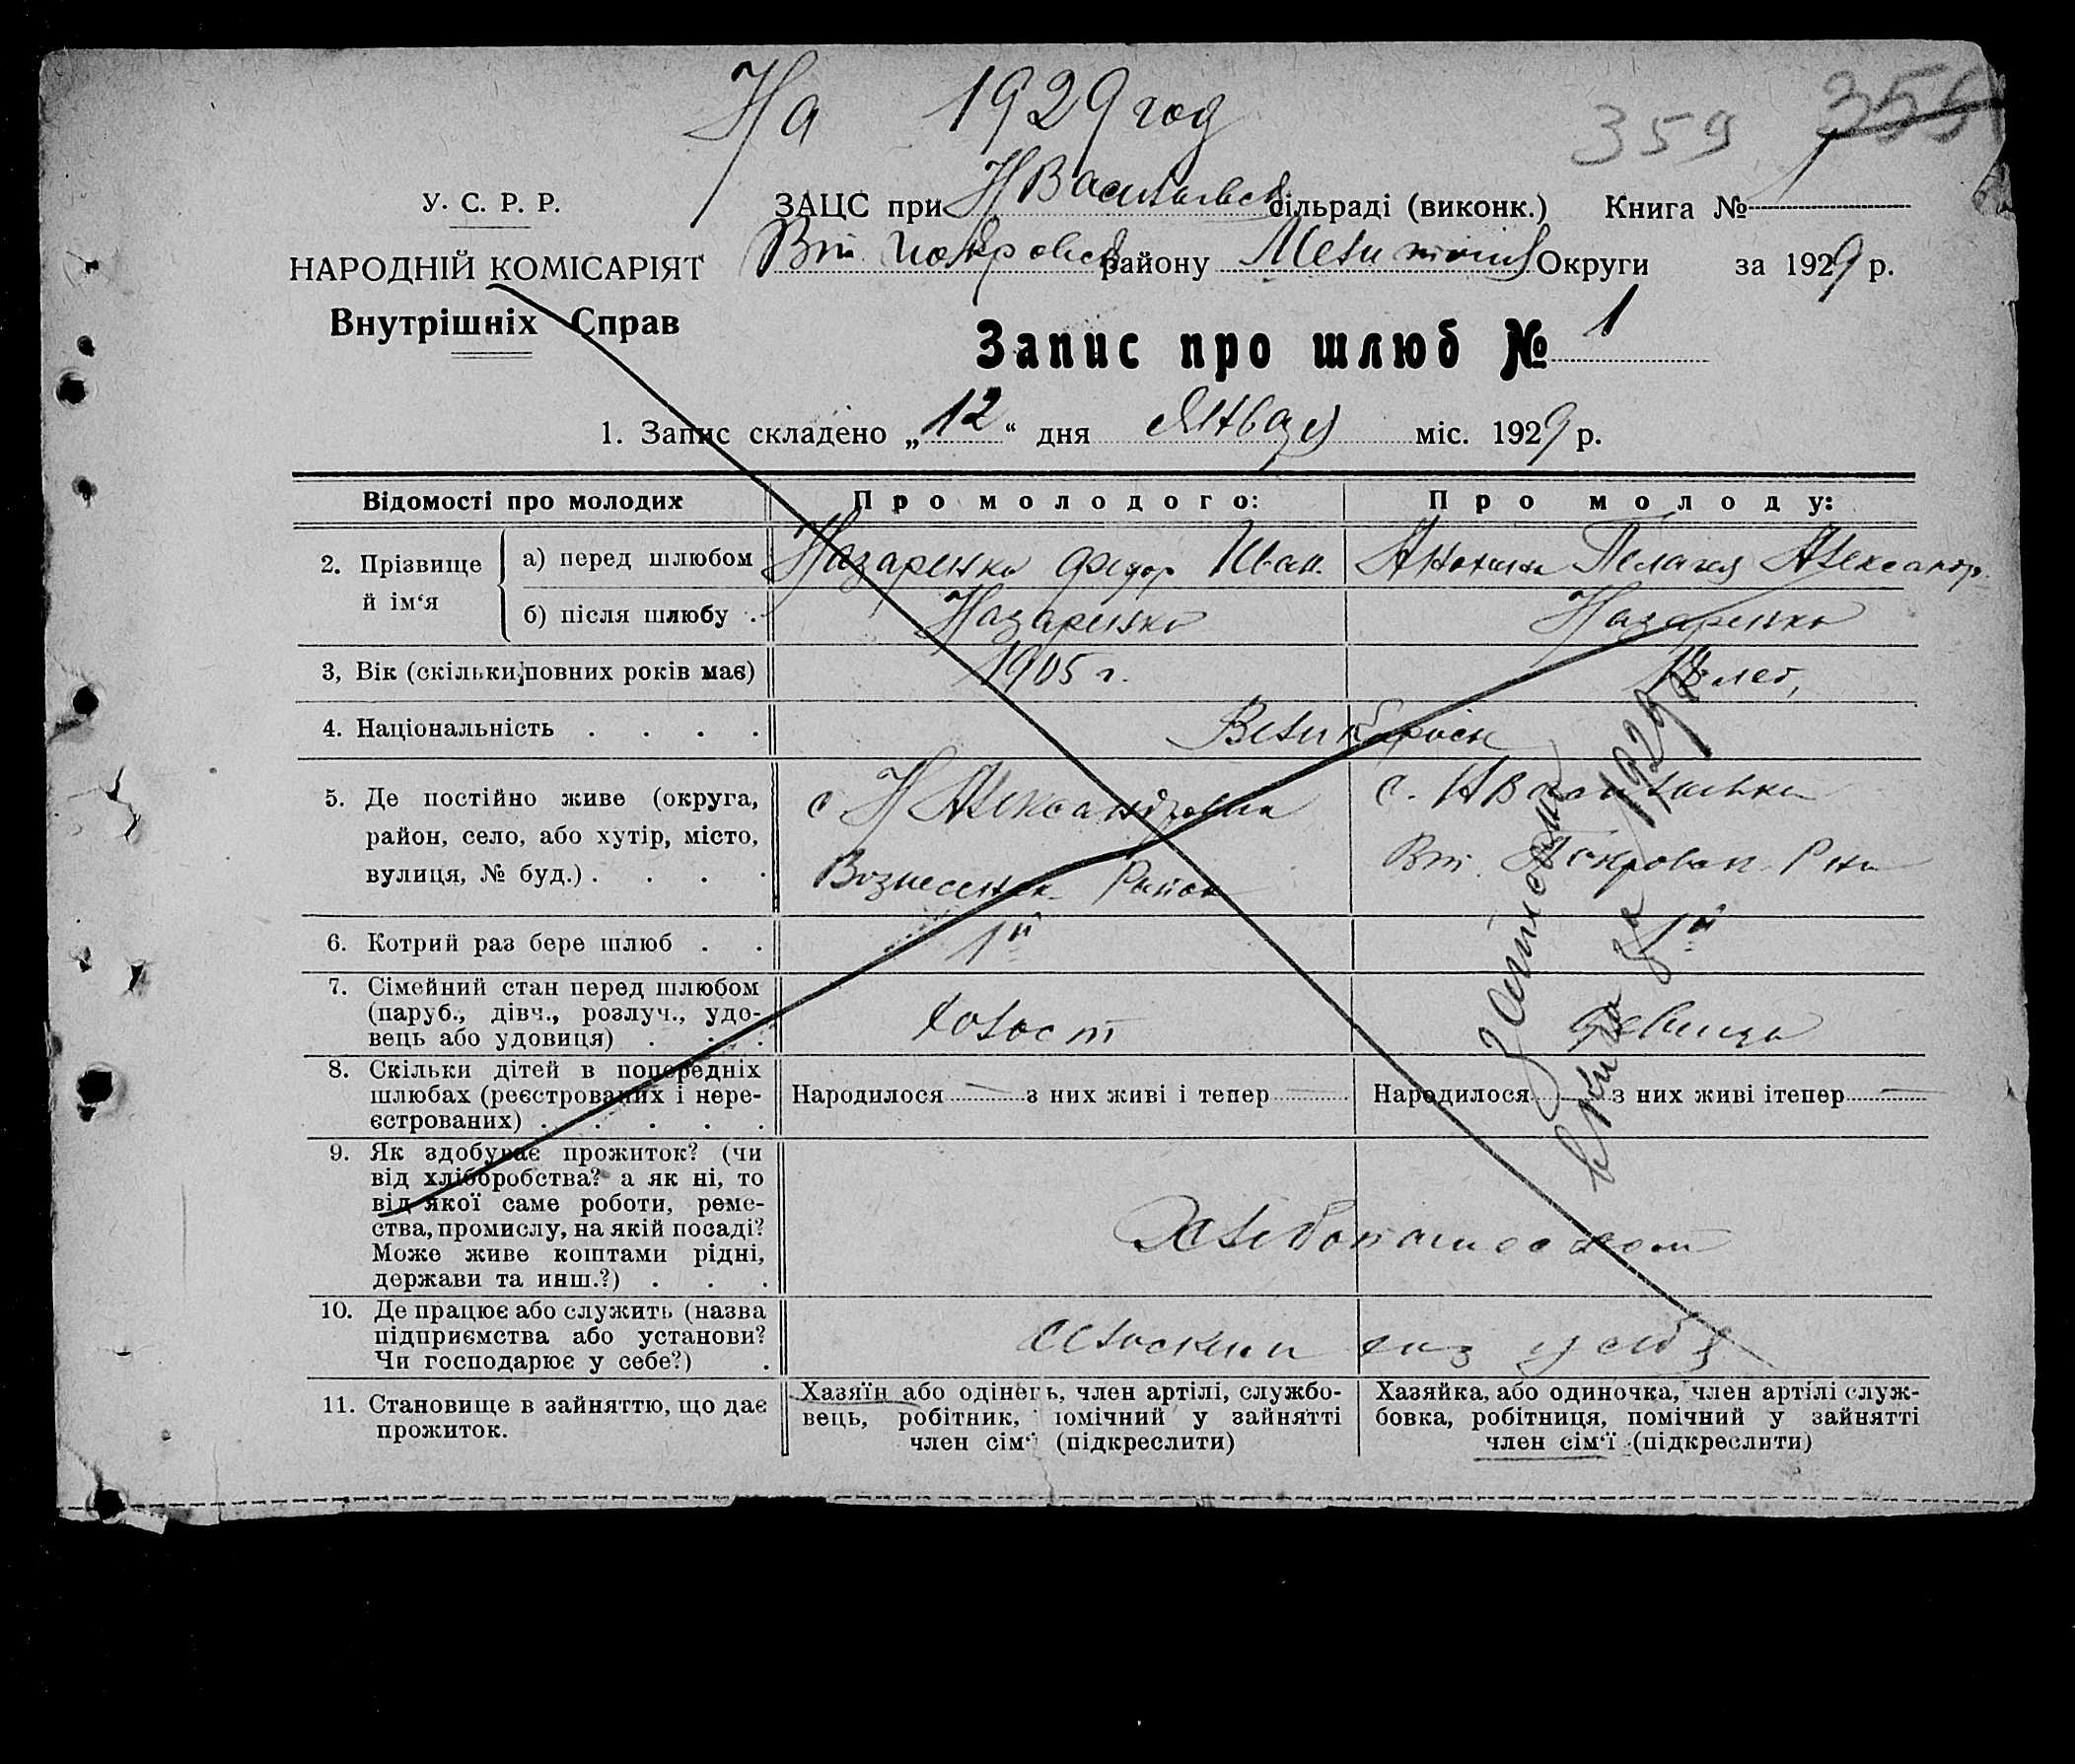 На 1929 год
359 355
У. С. Р. Р.
НАРОДНІЙ КОМІСАРІЯТ
Внутрішніх Справ
ЗАЦС при Н Васильевск сільраді (виконк.) Книга № 1
Вт. Покровск району Мелитопол Округи за 1929 р.
Запис про шлюб № 1
1. Запис складено „12“ дня Января міс. 1929 р.
Відомості про молодих Про молодого: Про молоду:
2. Прізвище й ім‘я
а) перед шлюбом Назаренко Федор Иван. Анохина Пелагея Александр.
б) після шлюбу . Назаренко Назаренко
3, Вік (скільки повних років має) 1905 г. 18 лет,
4. Національність . . . . Великоросы
5. Де постійно живе (округа,
район, село, або хутір, місто,
вулиця, № буд.) . . . .
с Н Александровка
Вознесенск. Район
с. Н Васильевка
Вт. Покровск Р на
6. Котрий раз бере шлюб . . 1й 1й
7. Сімейний стан перед шлюбом
(паруб., дівч., розлуч., удо-
вець або удовиця) . . .
холост девица
8. Скільки дітей в попередніх
шлюбах (реєстрованих і нере-
єстрованих) . . . . .
Народилося — з них живі і тепер —
Народилося — з них живі ітепер —
9. Як здобуває прожиток? (чи
від хліборобства? а як ні, то
від якої саме роботи, реме-
ства, промислу, на якій посаді?
Може живе коштами рідні,
держави та инш.?) . . .
Хлебопашеством
10. Де працює або служить (назва
підприємства або установи?
Чи господарює у себе?) .
11. Становище в зайняттю, що дає
прожиток.
Хазяїн або одінець, член артілі, службо-
вець, робітник, помічний у зайнятті
член сім‘ї (підкреслити)
Хазяйка, або одиночка, член артілі служ-
бовка, робітниця, помічний у зайнятті
член сім‘ї (підкреслити)